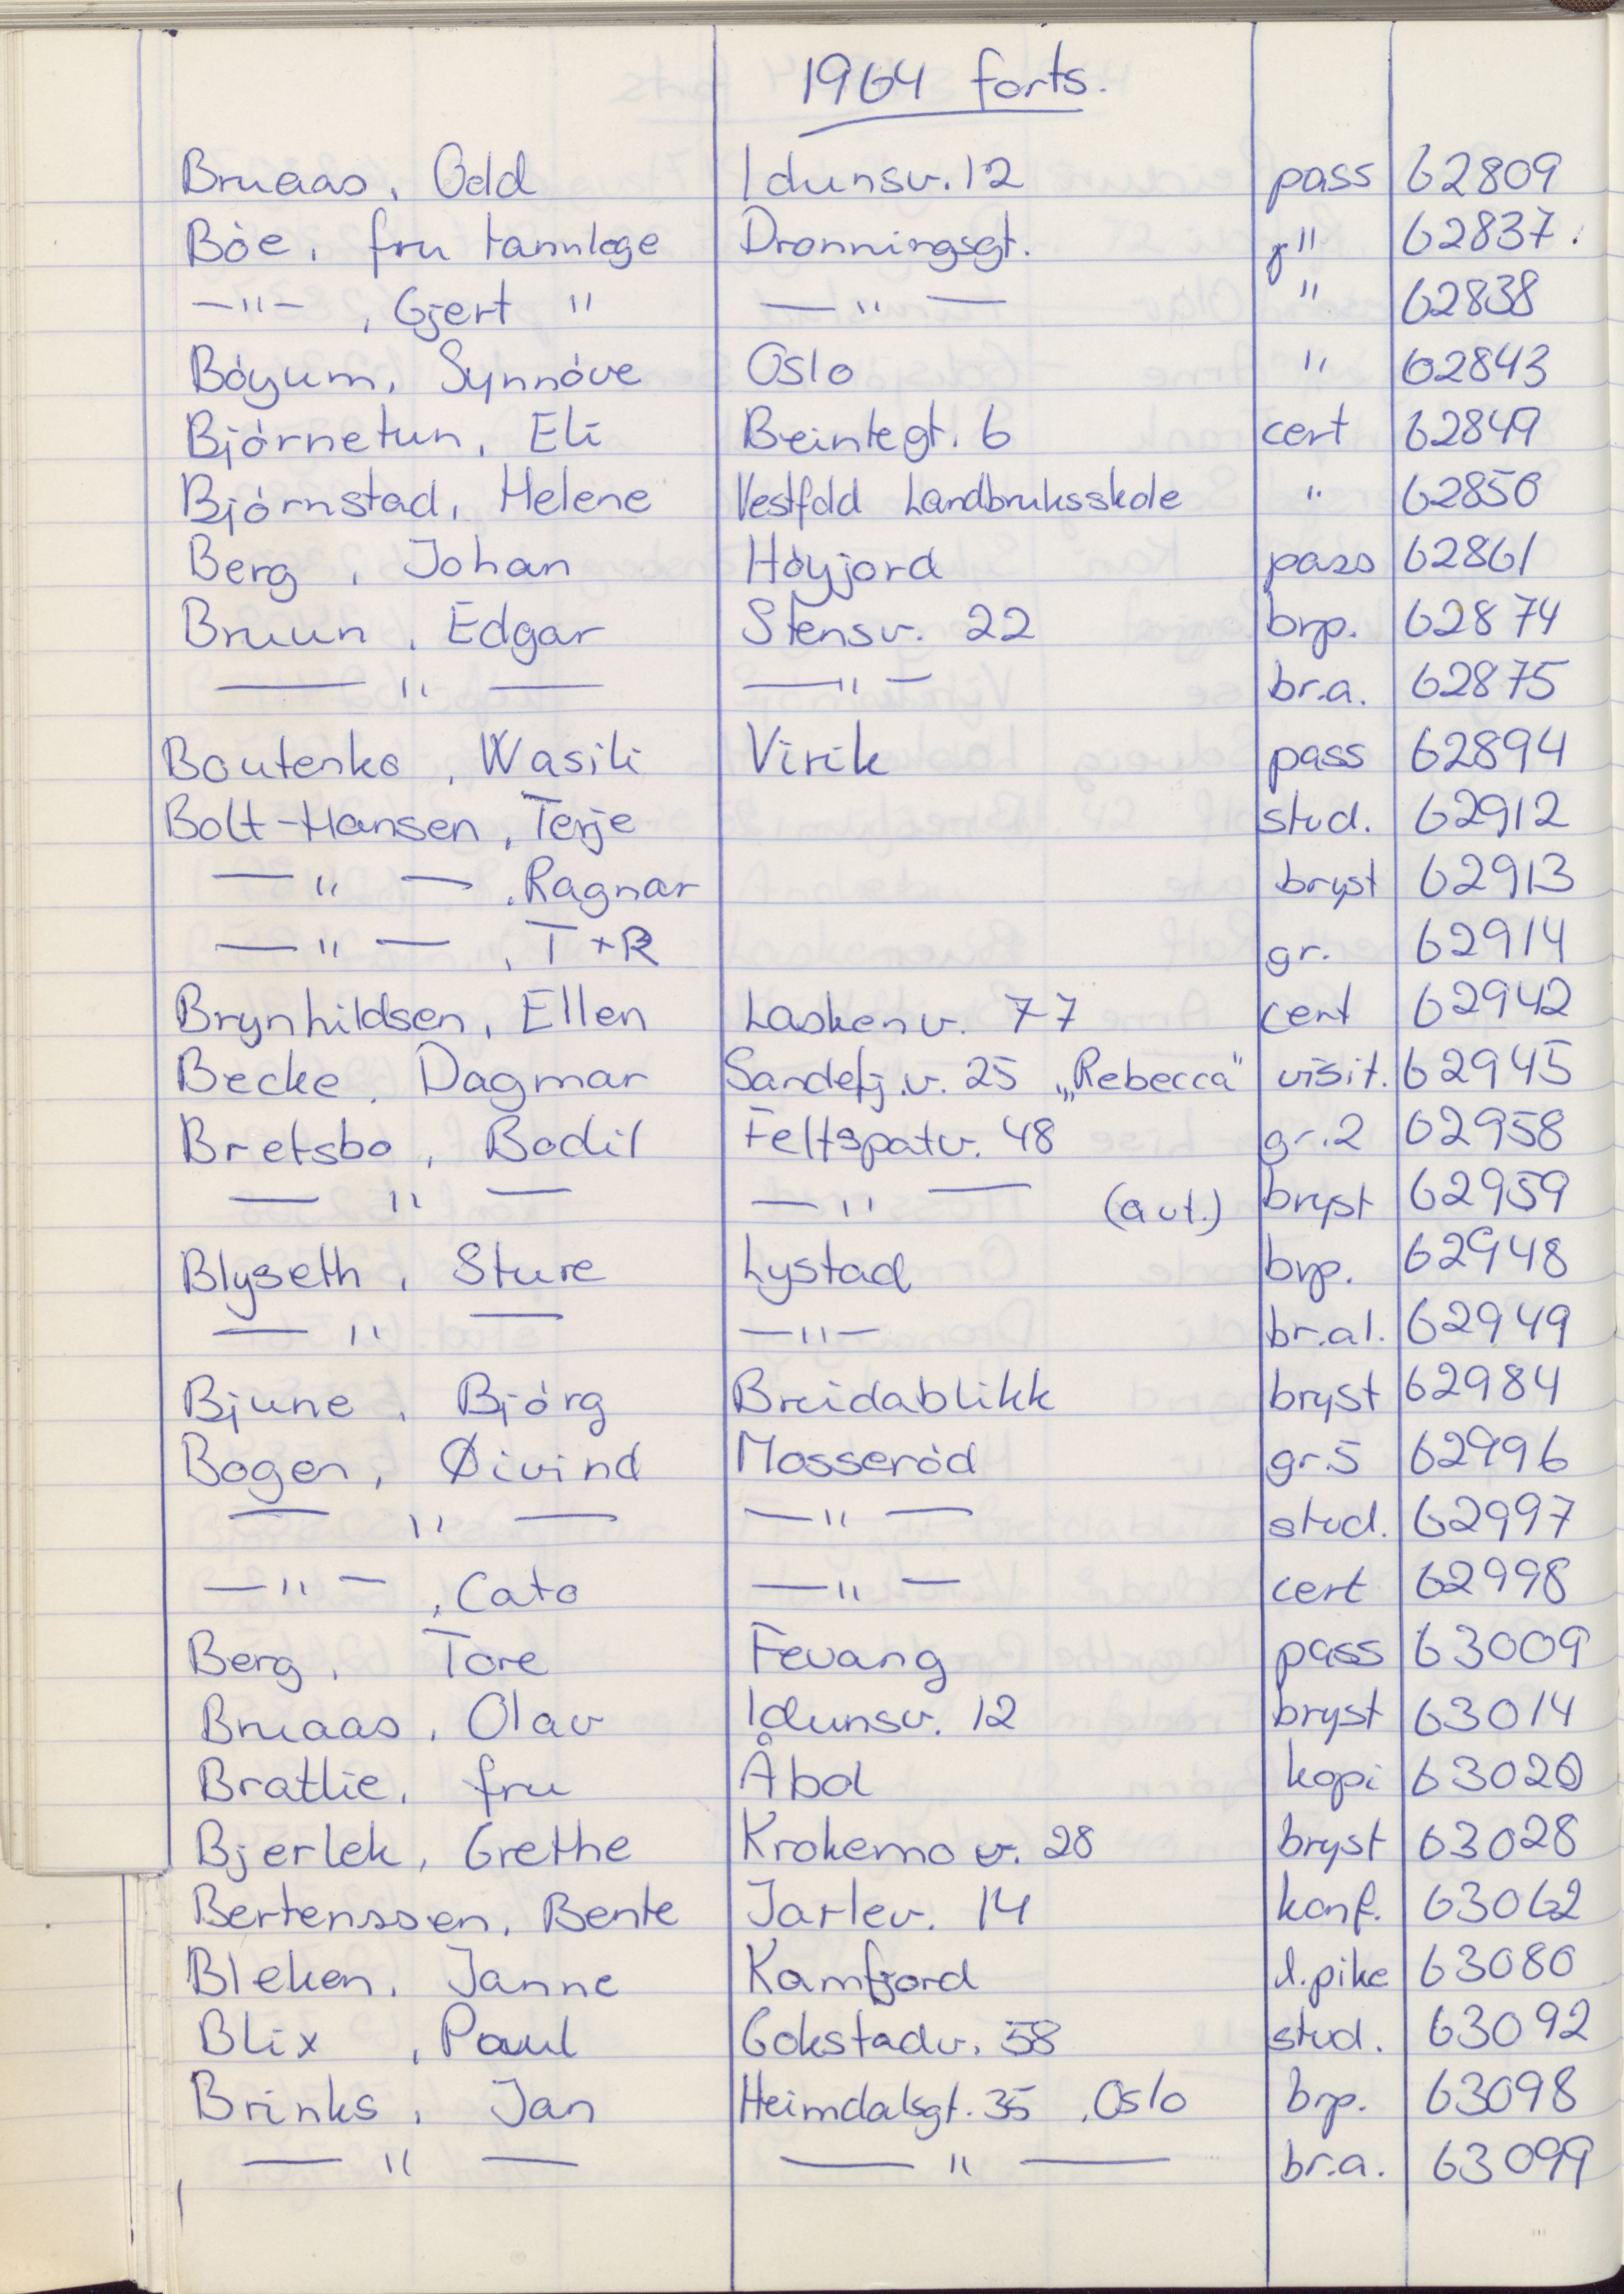 1964 forts.
Bruaas, Odd Idunsv. 12 pass 62809
Bóe, fru tannlege Dronningsgt. " 62837.
—"— , Gjert " —"— " 62838
Bóyum, Synnóve Oslo " 62843
Bjórnetun, Eli Beintegt. 6 cert 62849
Bjórnstad, Helene Vestfold Landbruksskole " 62850
Berg, Johan Hóyjord pass 62861
Bruun, Edgar Stensv. 22 brp. 62874
—"— —"— br.a. 62875
Boutenko, Wasili Virik pass 62894
Bolt-Hansen, Terje stud. 62912
—"— , Ragnar bryst 62913
—"— , T+R gr. 62914
Brynhildsen, Ellen Laskenv. 77 cert 62942
Becke, Dagmar Sandefj.v. 25 „Rebecca" visit. 62945
Bretsbo, Bodil Feltspatv. 48 gr.2 62958
—"— —"— (aut.) bryst 62959
Blyseth, Sture Lystad brp. 62948
—"— —"— br.al. 62949
Bjune, Bjórg Breidablikk bryst 62984
Bogen, Øivind Mosseród gr.5 62996
—"— —"— stud. 62997
—"— , Cato —"— cert 62998
Berg, Tore Fevang pass 63009
Bruaas, Olav Idunsv. 12 bryst 63014
Bratlie, fru Åbol kopi 63020
Bjerlek, Grethe Krokemo v. 28 bryst 63028
Bertenssen, Bente Jarlev. 14 konf. 63062
Bleken, Janne Kamfjord l.pike 63080
Blix, Paul Gokstadv. 58 stud. 63092
Brinks, Jan Heimdalsgt. 35, Oslo brp. 63098
—"— —"— br.a. 63099